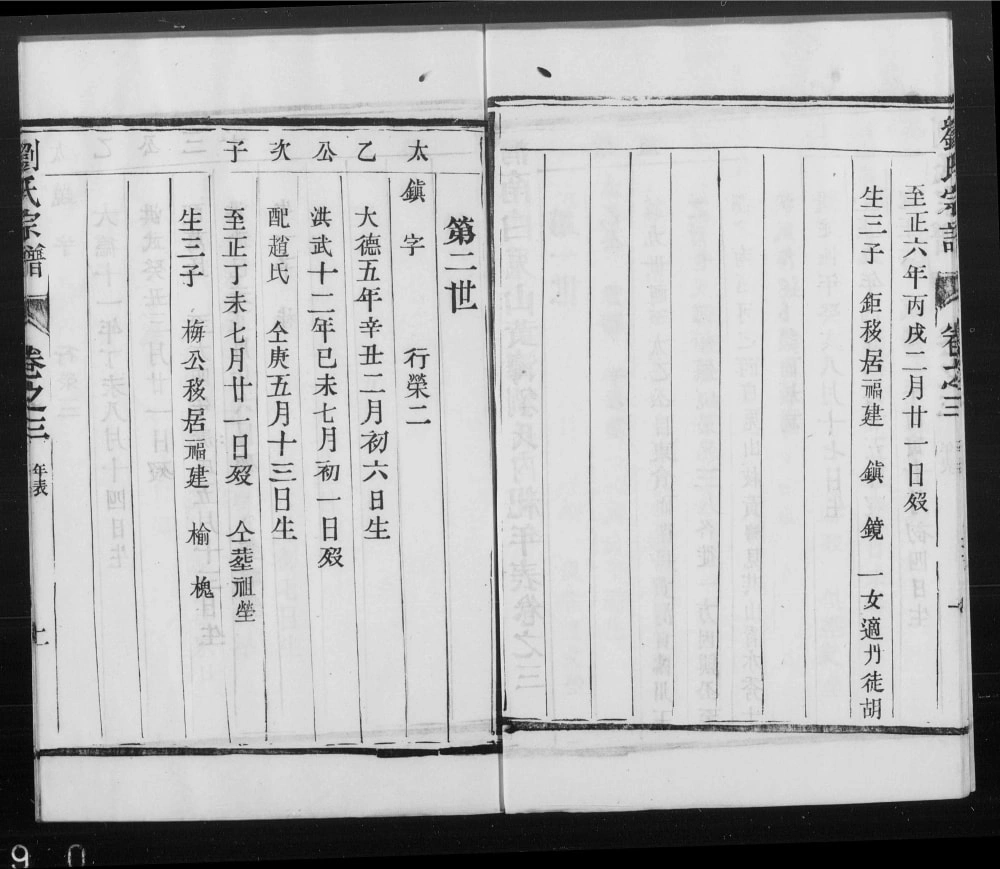 劉氏宗譜 卷之三
至正六年丙戌二月廿一日歿
生三子 鉅移居福建 鎮 鏡 一女適丹徒胡
第二世
太 鎮字 行榮二
乙 大德五年辛丑二月初六日生
公 洪武十二年已未七月初一日歿
次 配趙氏 仝庚五月十三日生
子 至正丁未七月廿一日歿 仝塟祖塋
生三子 梅公移居福建 榆 槐
劉氏宗譜 卷之三 年表
9 0